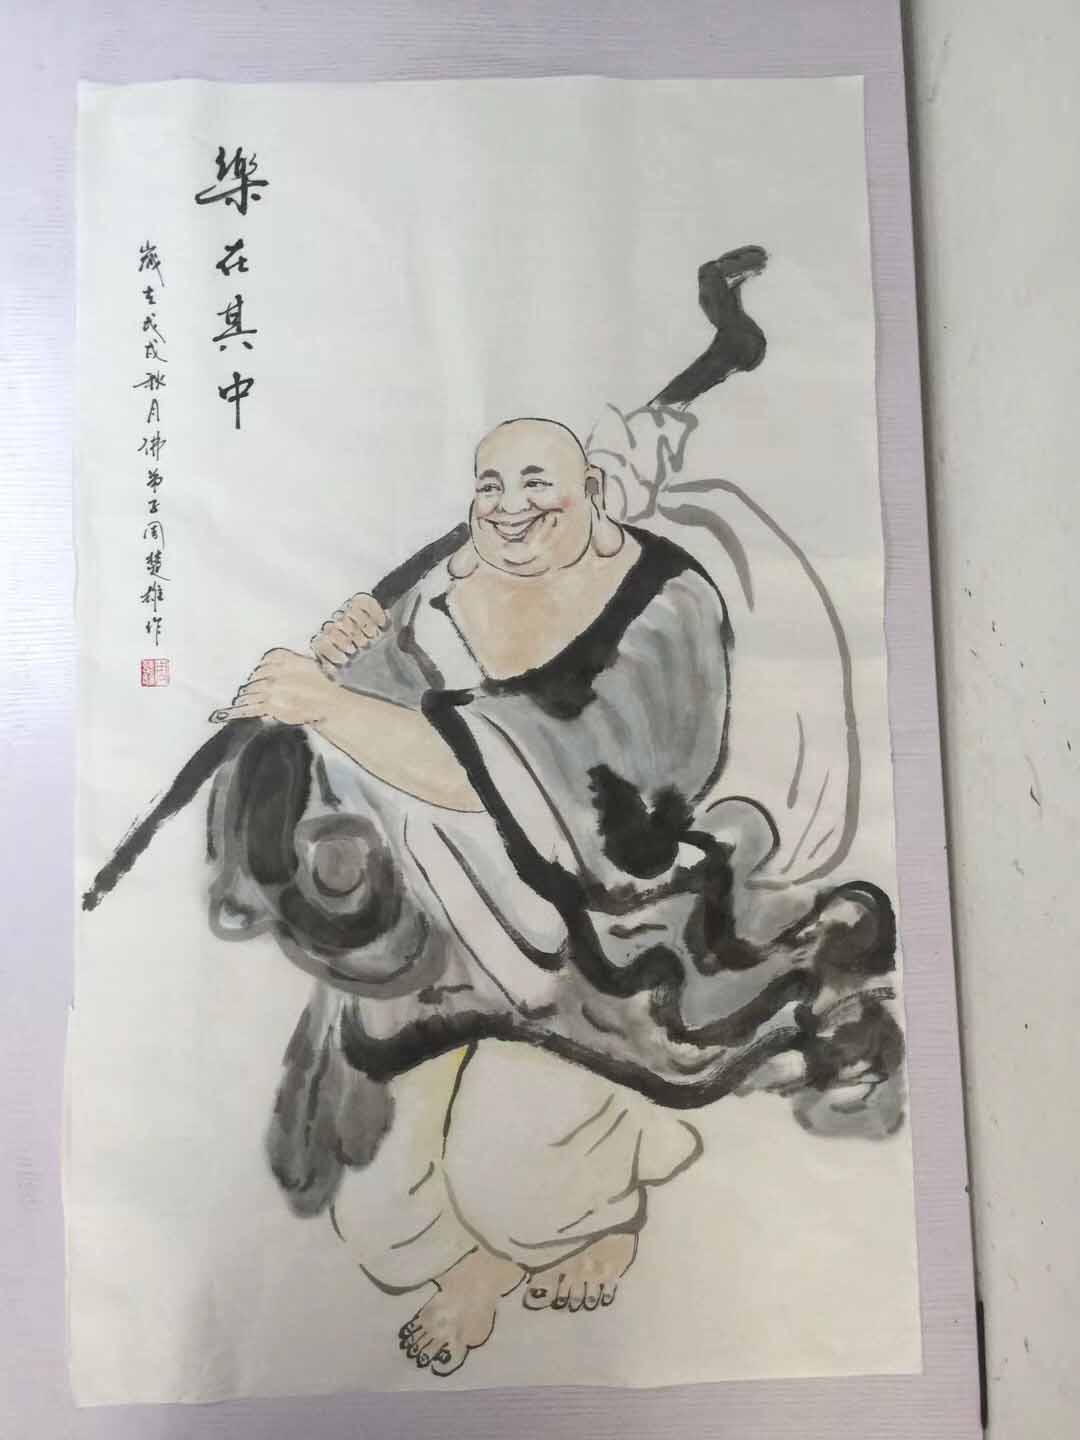 樂在其中
歲在戊戌秋月佛弟子周楚雄作